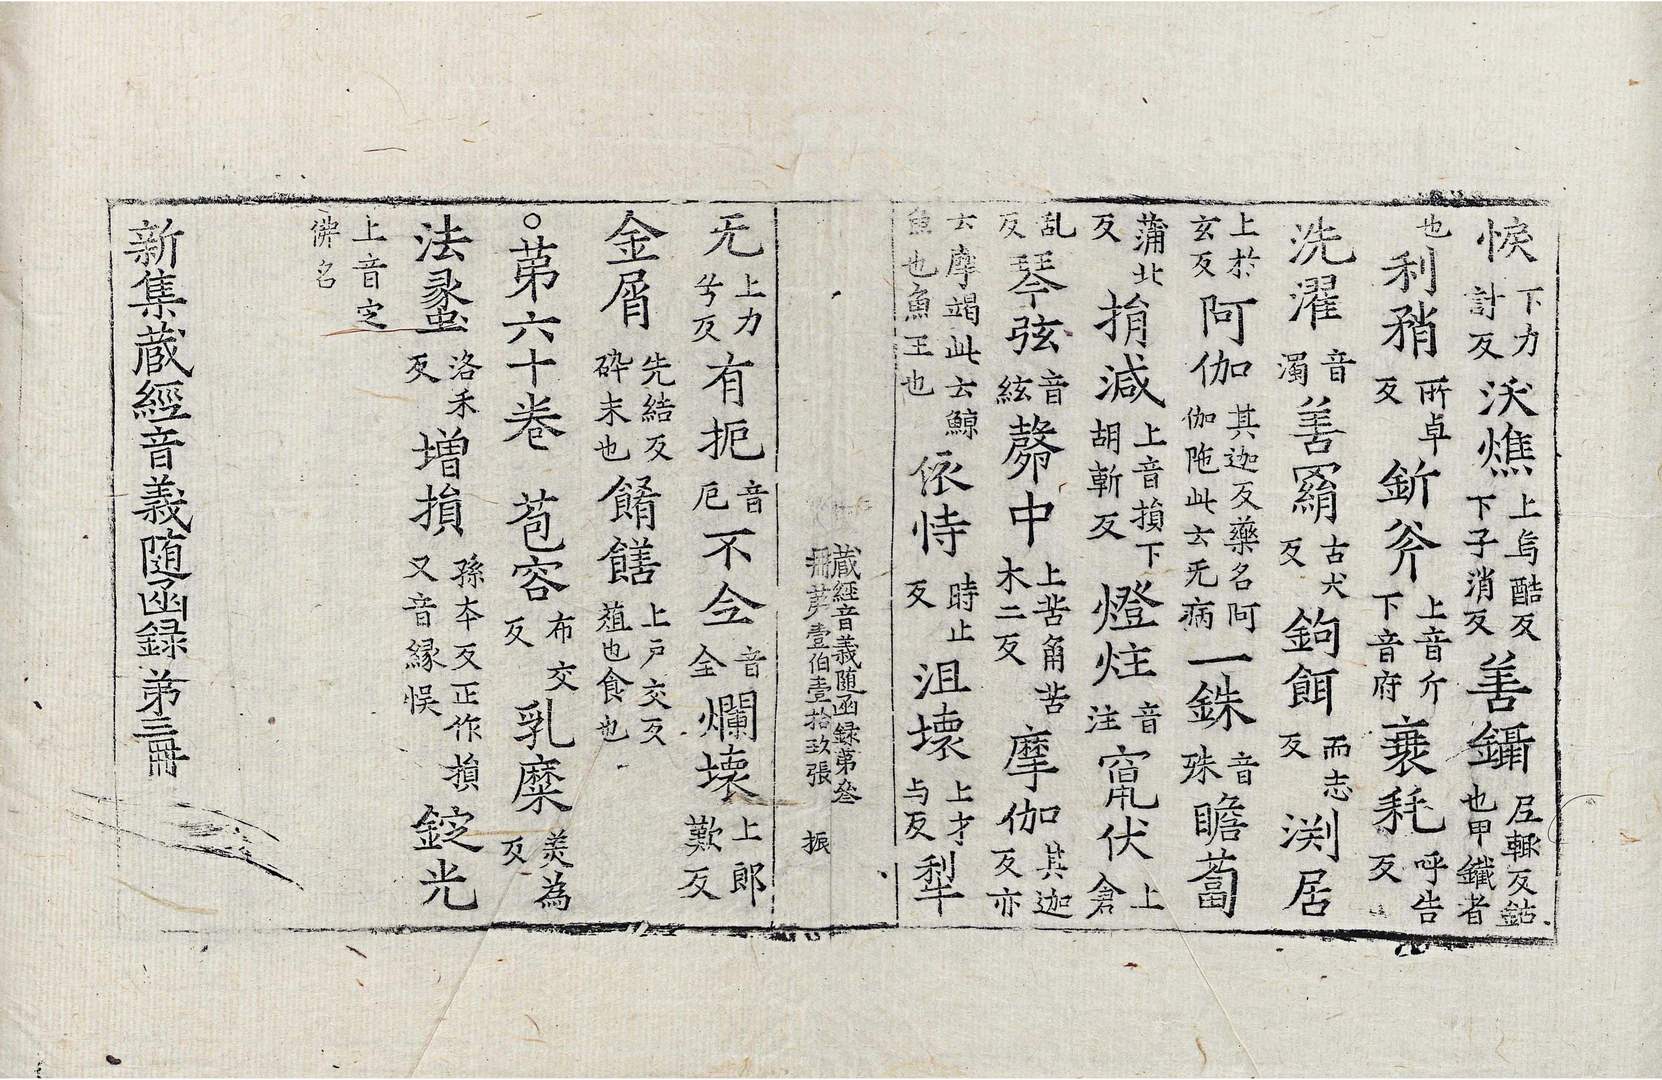 悷下力計反沃燋上烏酷反下子消反善鑷尼輒反鉆也甲鐵者
也利矟所卓反釿斧上音斤下音府衰耗呼告反
洗濯音濁善羂古犬反鉤餌而志反渕居
上於玄反阿伽其迦反藥名阿伽陁此云无病一銖音殊瞻蔔
蒲北反損減上音損下胡斬反燈炷音注竄伏上倉
乱反琴弦音絃中上苦角苦木二反摩伽其迦反亦
云摩竭此云鯨魚也魚王也依恃時止反沮壞上才与反犁
蔵經音義随函録第叄冊 苐壹伯壹拾玖張 振
无上力兮反有扼音厄不仝音全爛壞上郎歎反
金屑先結反碎末也餚饍上戶交反葅也食也
○苐六十卷 苞容布交反乳糜美為反
法蠡洛禾反增損孫本反正作損又音緣悮錠光
上音定佛名
新集蔵經音義随函録苐三冊